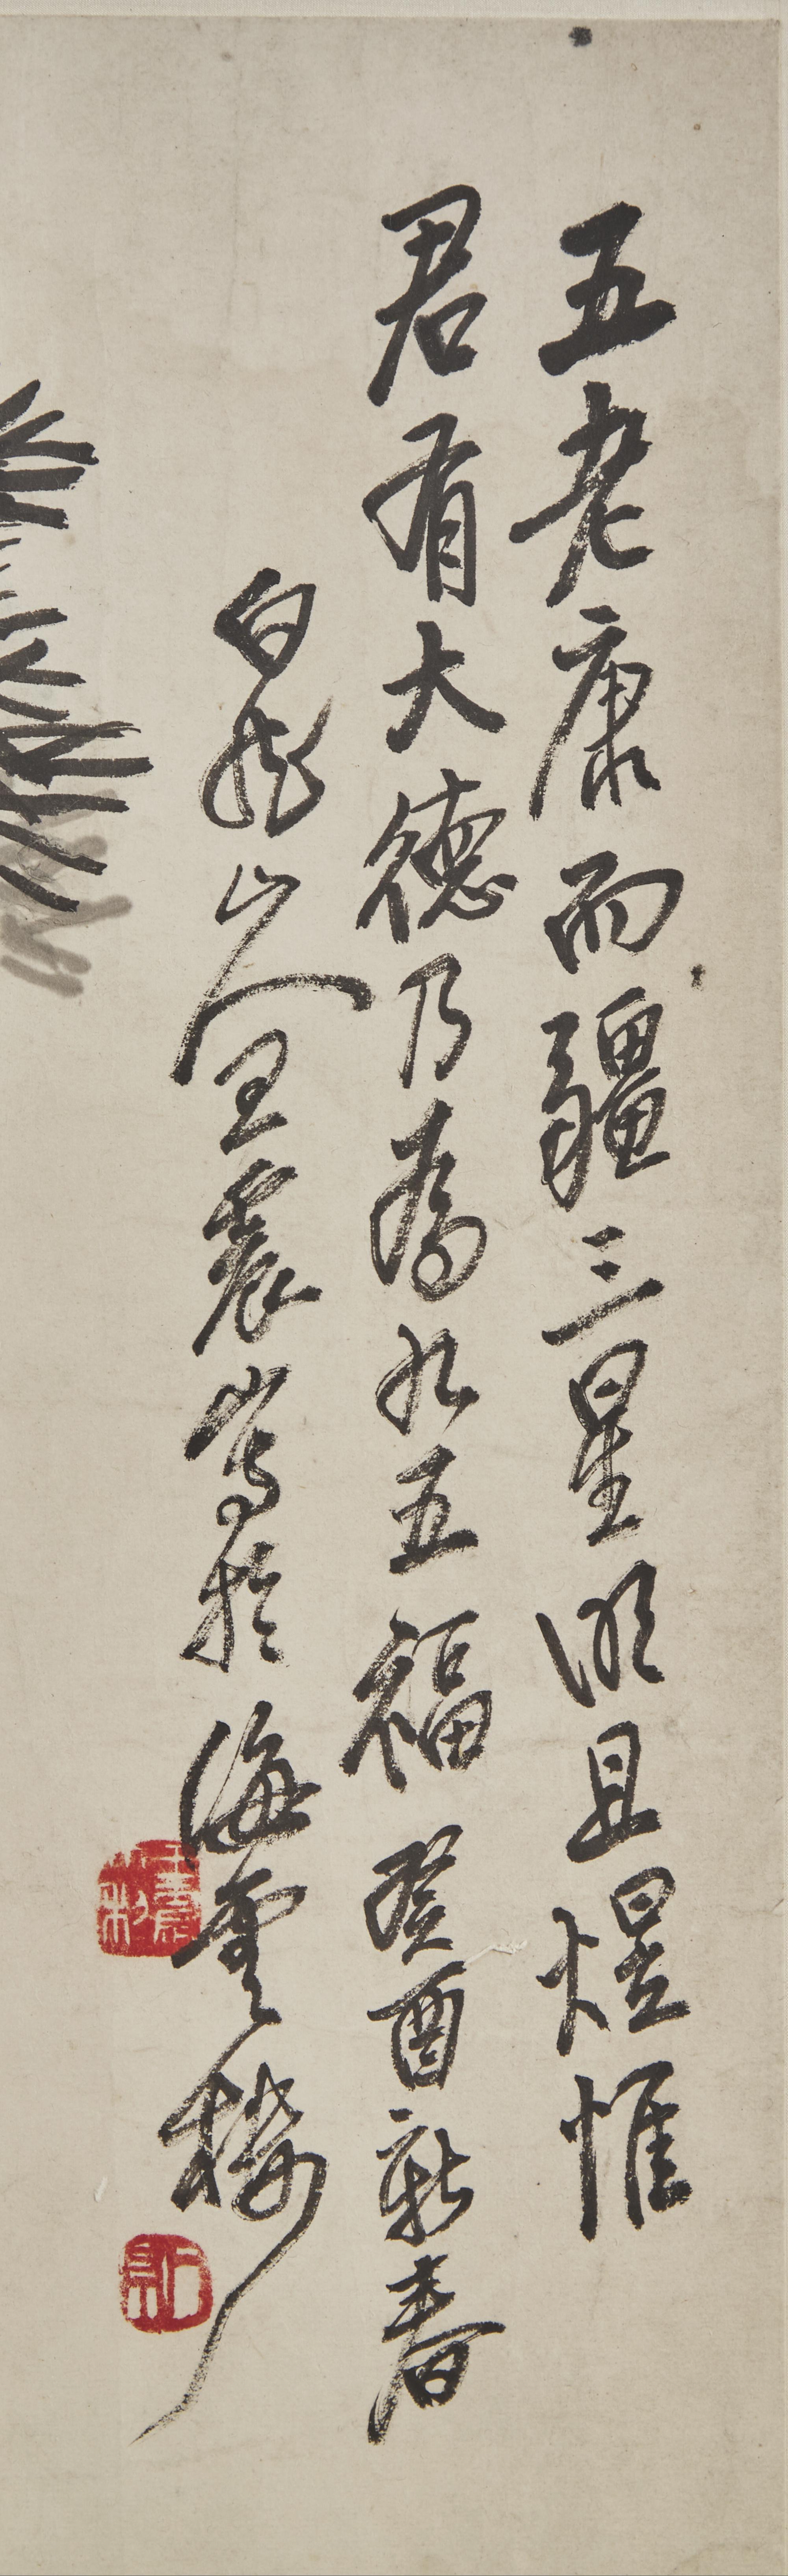 五老康而疆三星明且煜惟
君有大德乃為九五福癸酉新春
白龍山人王震寫於海雲樓